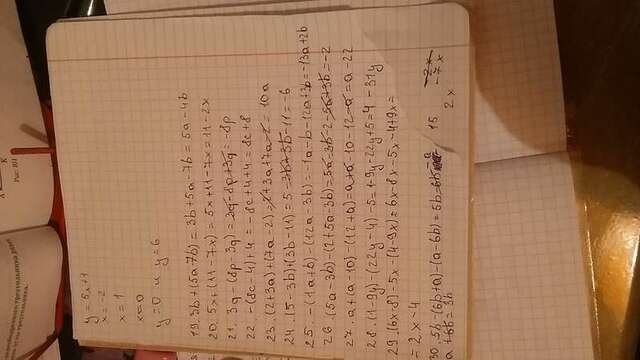 Рис. 101
y = 5x+1
x = -2
x = 1
x = 0
y = 0 и y = 6
19. 3b + (5a - 7b) = 3b + 5a - 7b = 5a - 4b
20. 5x + (11 - 7x) = 5x + 11 - 7x = 11 - 2x
21. 3q - (8p - 3q) = 3q - 8p + 3q = -8p
22. -(8c - 4) + 4 = -8c + 4 + 4 = 8c + 8
23. (2 + 3a) + (7a - 2) = 2 + 3a + 7a - 2 = 10a
24. (5 - 3b) + (3b - 11) = 5 - 3b + 3b - 11 = -6
25. -(1a + b) - (12a - 3b) = -1a - b - 12a + 3b = -13a + 2b
26. (5a - 3b) - (2 + 5a - 3b) = 5a - 3b - 2 - 5a + 3b = -2
27. a + (a - 10) - (12 + a) = a + a - 10 - 12 - a = a - 22
28. (1 - 9y) - (22y - 4) - 5 = 1 - 9y - 22y + 5 = 4 - 31y
29. (6x - 8) - 5x - (4 - 9x) = 6x - 8x - 5x - 4 + 9x =
= 2x - 4
30. 5b - (6b + a) - (a - 6b) = 5b - 6b - a
a + 6b = 3b
15
-2x
-7x
2x